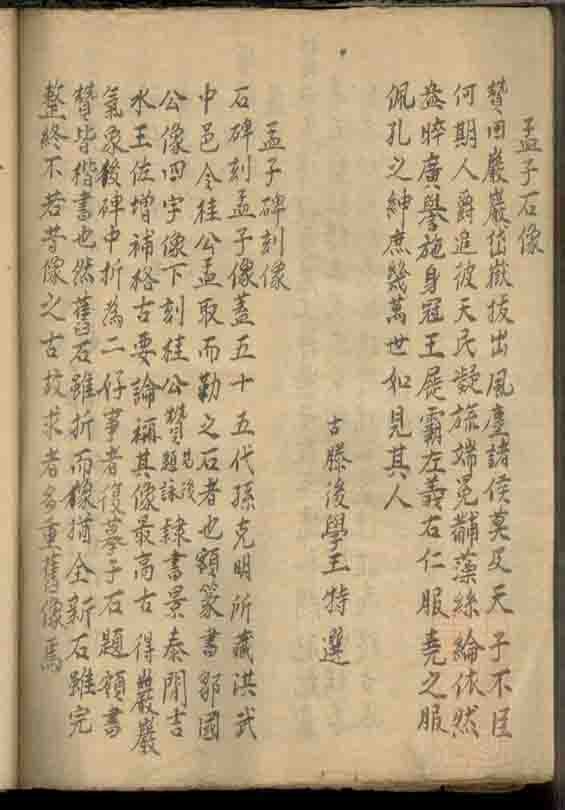 孟子石像
賛曰巖巖岱嶽拔出風塵諸侯莫友天子不臣
何期人爵追彼天民凝旒端冕黼藻絲綸依然
盎睟廣譽施身冠王屐霸左義右仁服堯之服
佩孔之紳庶幾萬世如見其人
古滕後學王特選
孟子碑刻像
石碑刻孟子像蓋五十五代孫克明所藏洪武
中邑令桂公孟取而勒之石者也額篆書鄒國
公像四字像下刻桂公賛為後題詠隸書景泰間吉
水王佐增補格古要論稱其像最高古得巖巖
氣象後碑中折為二仔事者復摹于石題額書
賛皆楷書也然舊石雖折而像猶全新石雖完
整終不若昔像之古故求者多重舊像焉